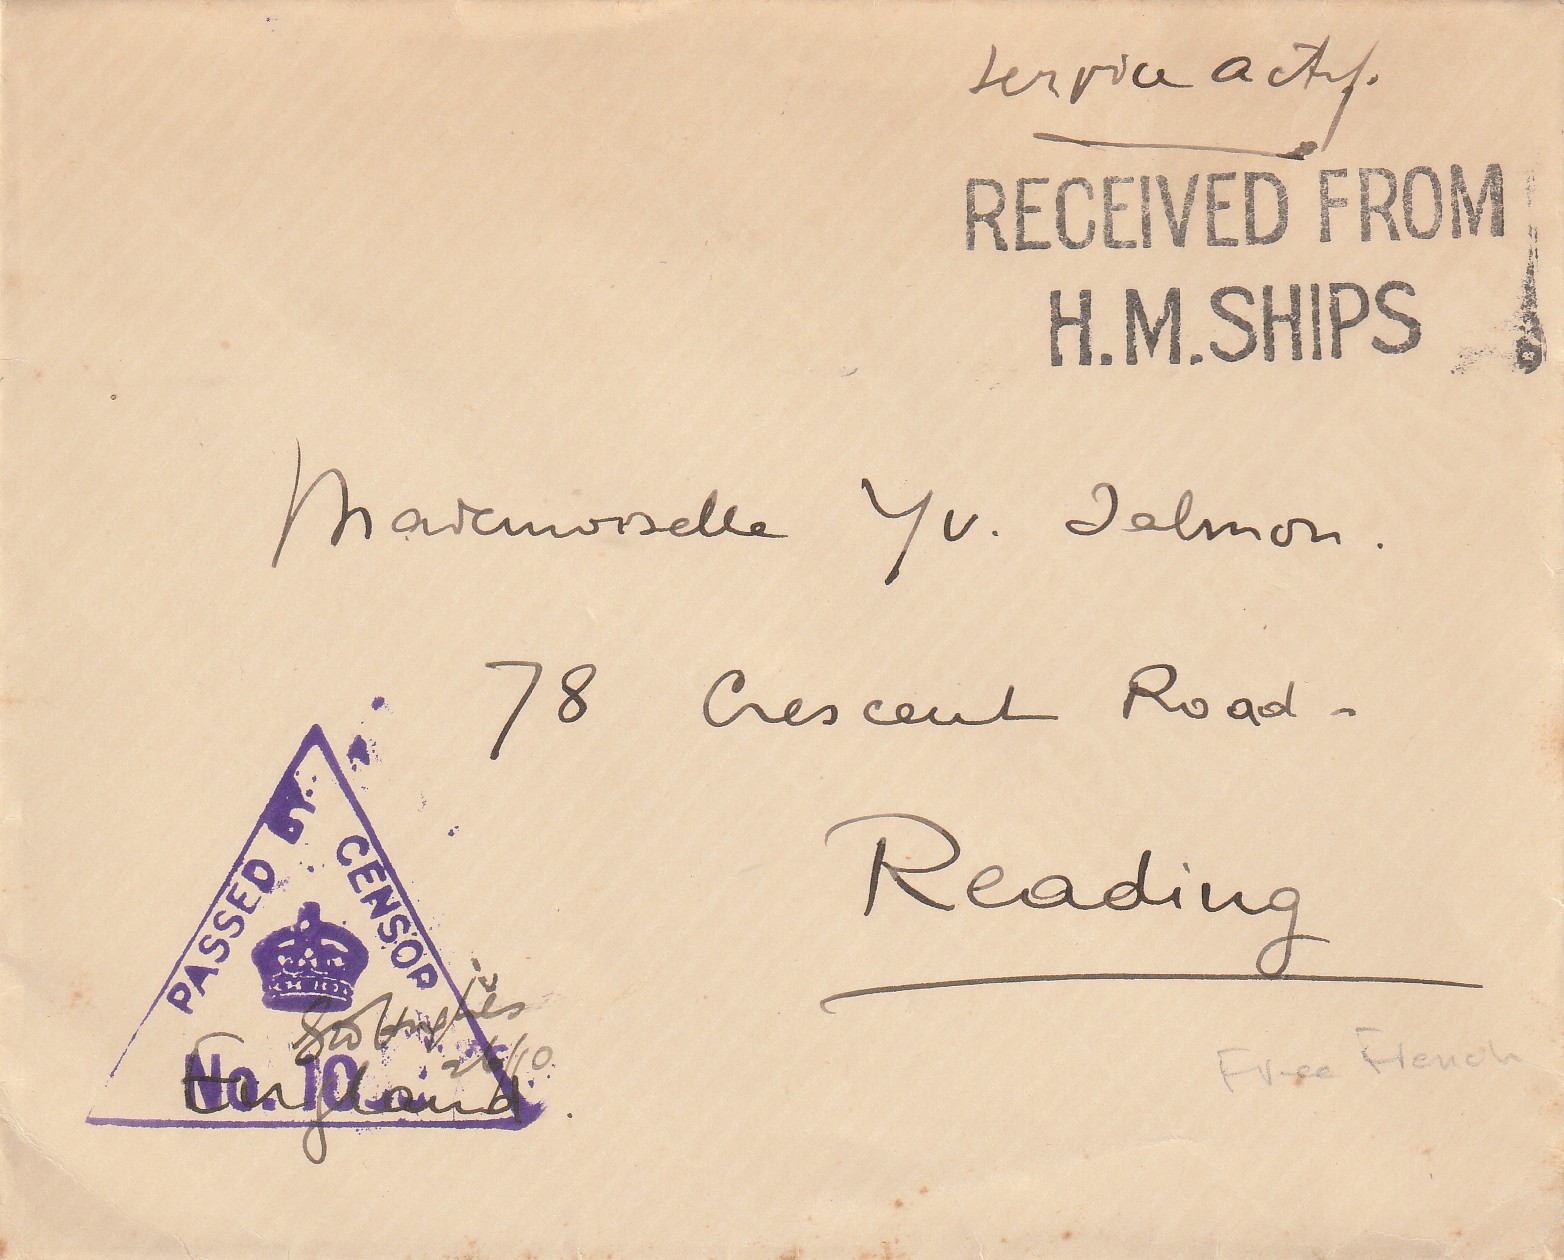 Service actif.
RECEIVED FROM
H.M.SHIPS
Mademoiselle Yv. Delmon.
78 Crescent Road -
Reading
PASSED BY CENSOR
No. 10
26/10
England.
Free French